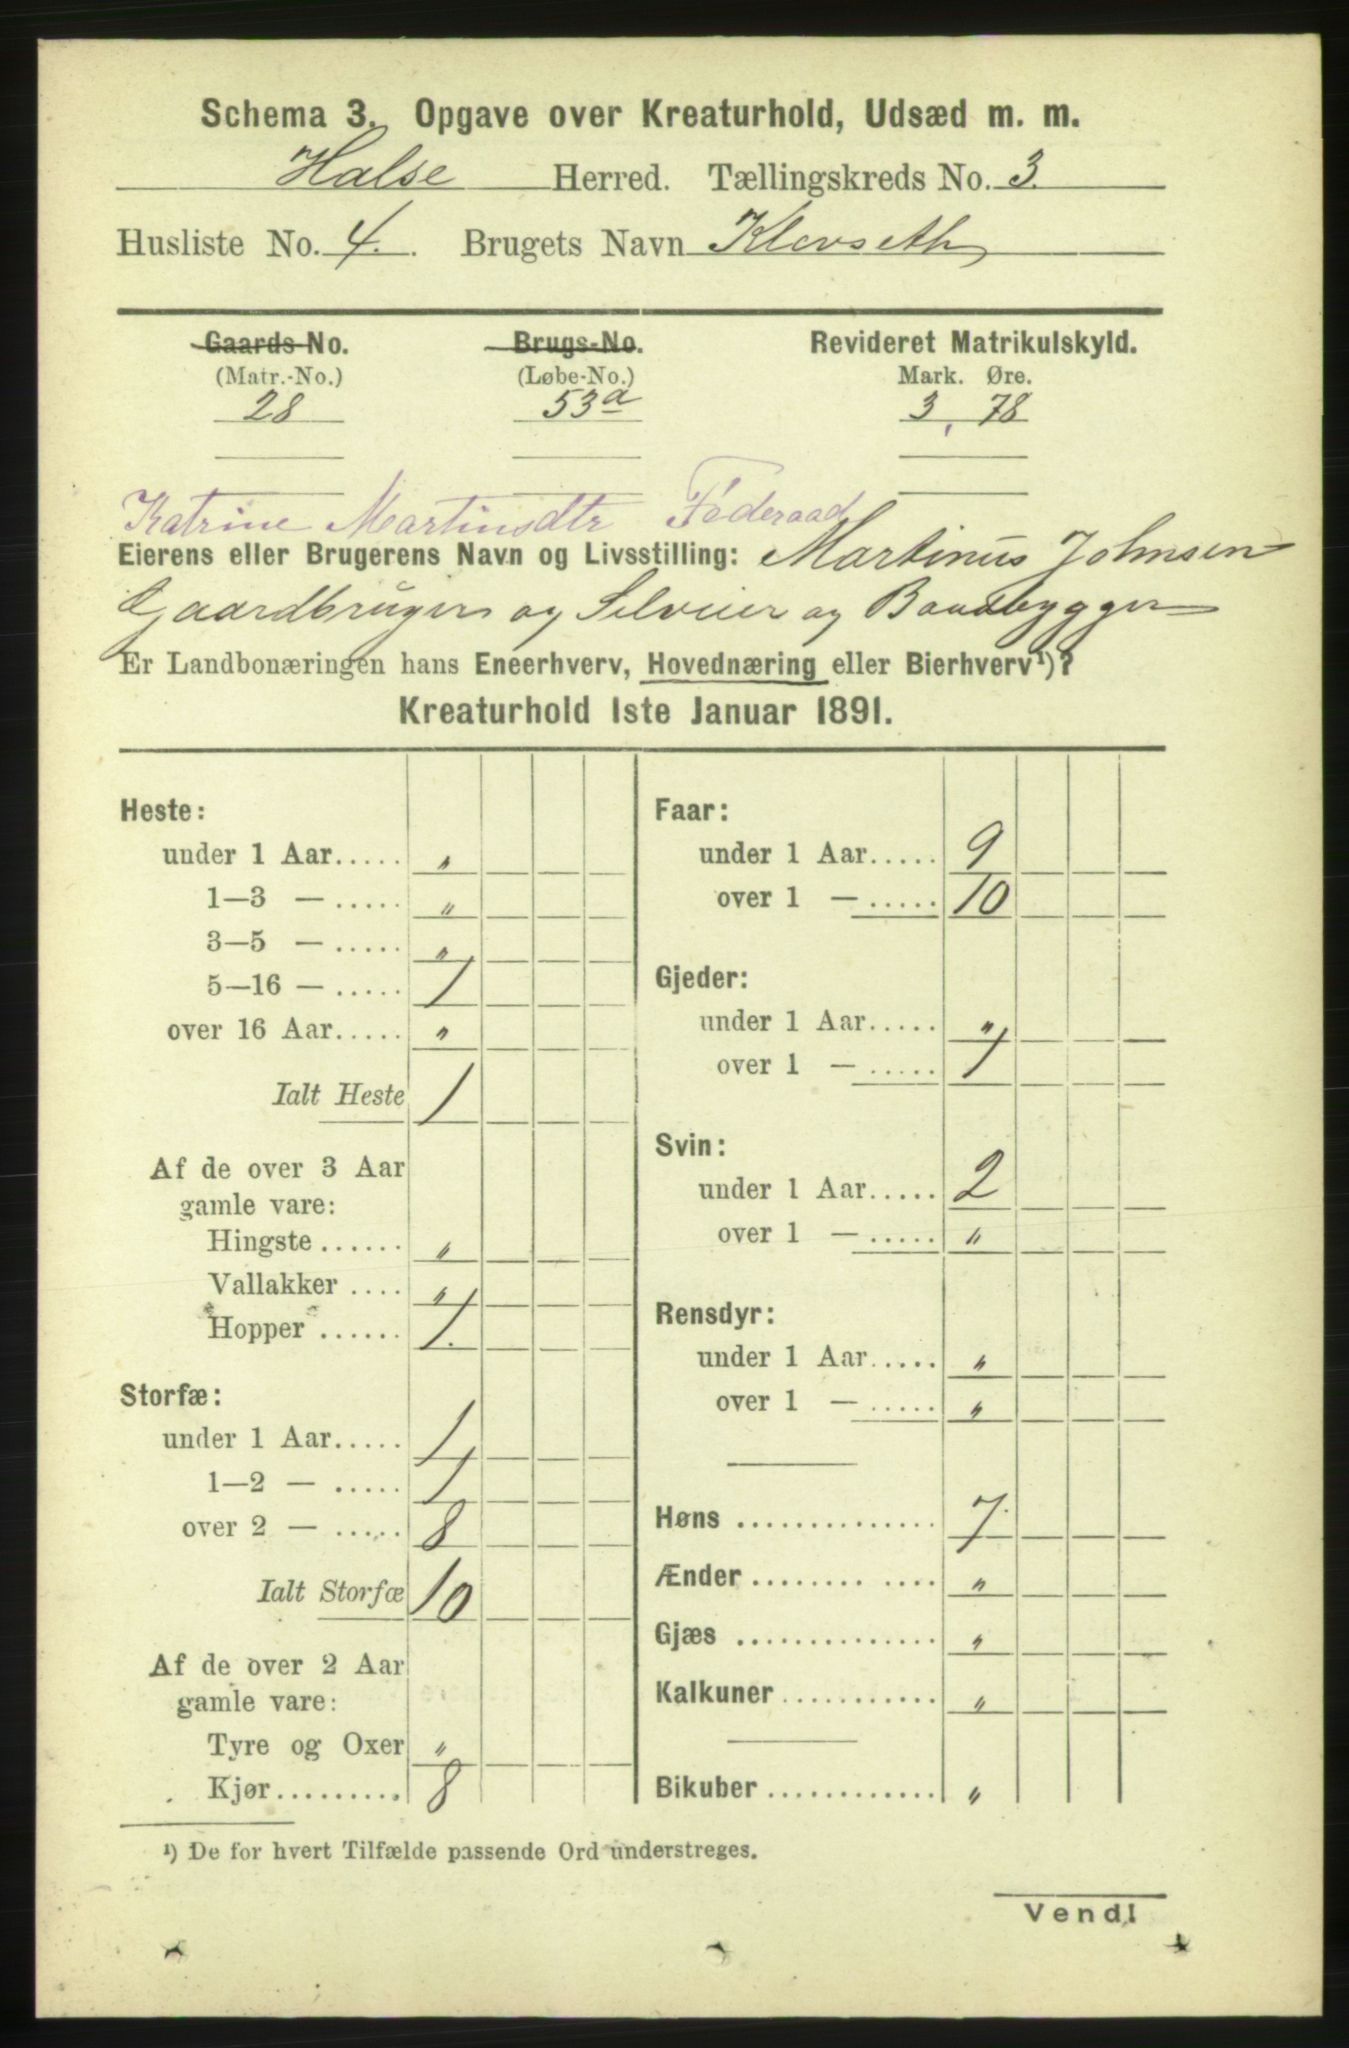 Schema 3. Opgave over Kreaturhold, Udsæd m. m.
Halse Herred. Tællingskreds No. 3.
Husliste No. 4. Brugets Navn Klevseth
Gaards-No. Brugs-No. Revideret Matrikulskyld.
(Matr.-No.) (Løbe-No.) Mark. Øre.
28 53a 3, 78
Katrine Martinsdtr Føderaad
Eierens eller Brugerens Navn og Livsstilling: Martinus Johnsen
Gaardbruger og Selveier og Baadbygger
Er Landbonæringen hans Eneerhverv, Hovednæring eller Bierhverv¹)?
Kreaturhold 1ste Januar 1891.
Heste:
under 1 Aar..... "
1—3 — ..... "
3—5 — ..... "
5—16 — ..... 1
over 16 Aar..... "
Ialt Heste 1
Af de over 3 Aar
gamle vare:
Hingste ...... "
Vallakker .... "
Hopper ...... 1.
Storfæ:
under 1 Aar..... 1
1—2 — ..... 1
over 2 — ..... 8
Ialt Storfæ 10
Af de over 2 Aar
gamle vare:
Tyre og Oxer "
Kjør.......... 8
Faar:
under 1 Aar..... 9
over 1 — ..... 10
Gjeder:
under 1 Aar..... "
over 1 — ..... 1
Svin:
under 1 Aar..... 2
over 1 — ..... "
Rensdyr:
under 1 Aar..... "
over 1 — ..... "
Høns .............. 7.
Ænder ........ .... "
Gjæs .............. "
Kalkuner ........... "
Bikuber ............. "
¹) De for hvert Tilfælde passende Ord understreges.
Vend!